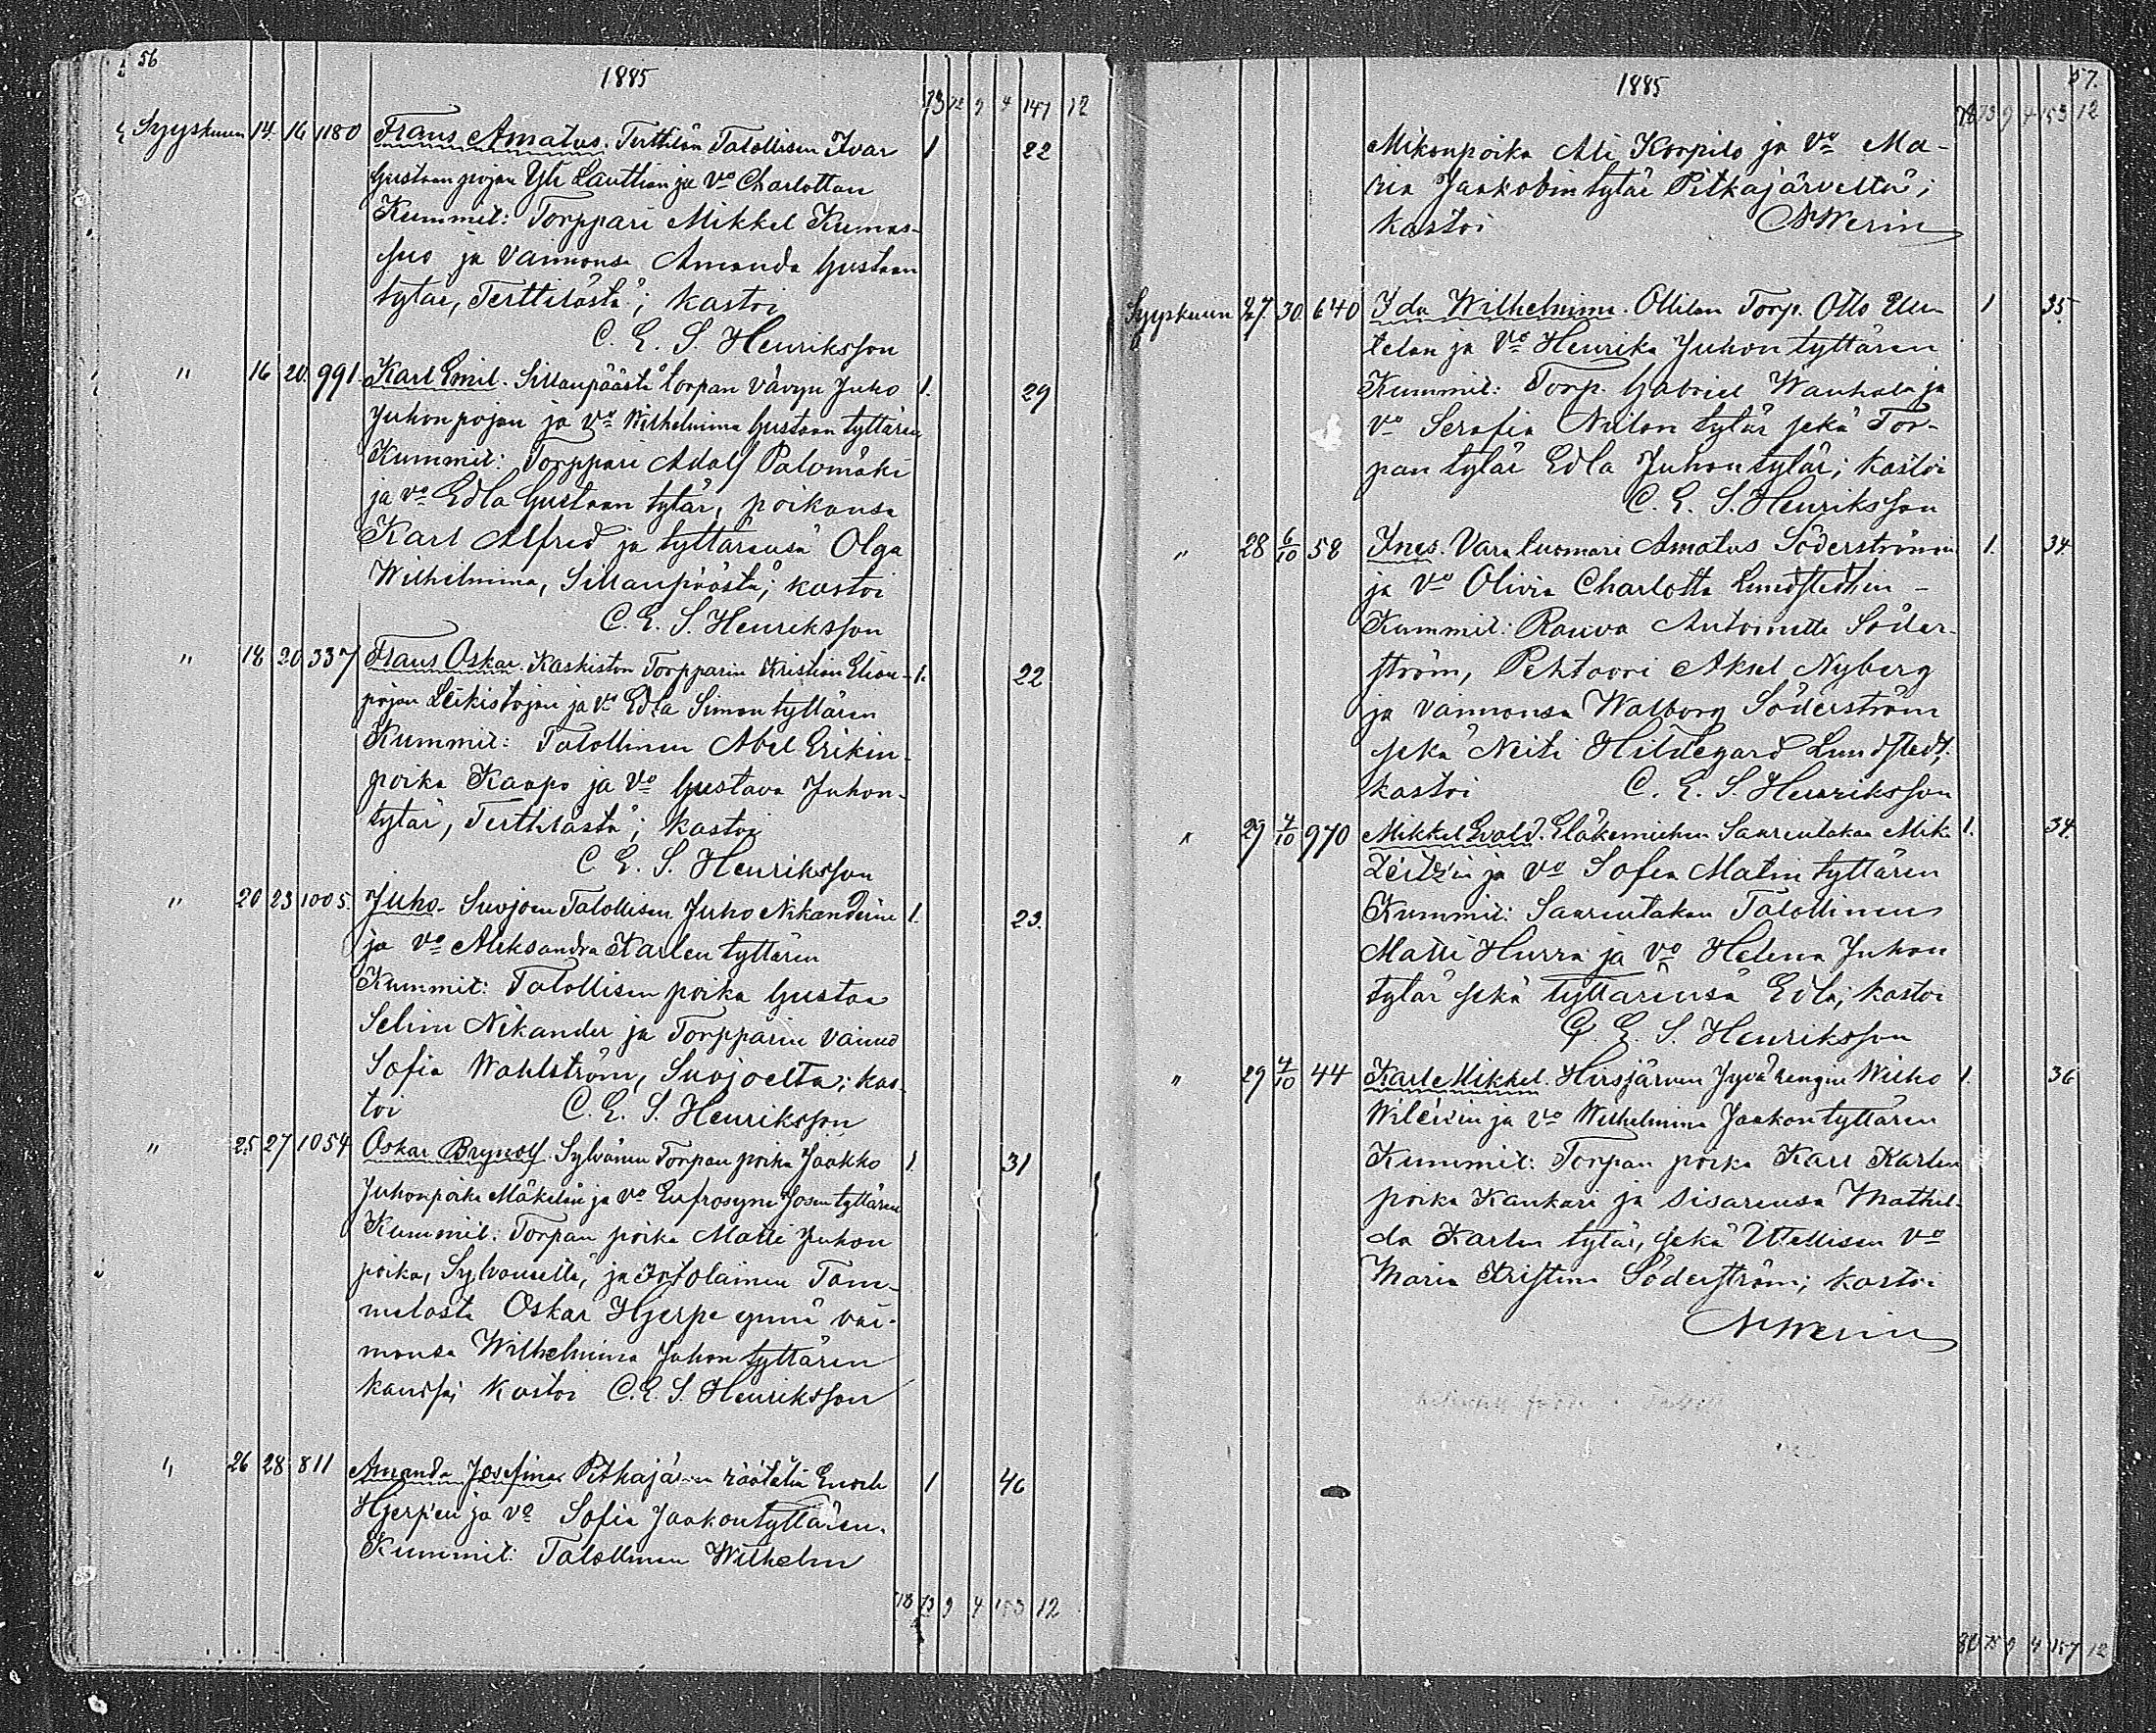 56
1885
73 72 9 4 147 12
Syyskuun 14. 16 1180 Frans Amatus. Terttilän Talollisen Ivar 1 22
Gustaan pojan Yli Lauttian ja vo Charlottan
Kummit: Torppari Mikkel Kumos-
suo ja vaimonsa Amanda Gustaan
tytär, Terttilästä; kastoi
C. E. S. Henriksson
" 16 20. 991. Karl Emil. Sillanpäästä torpan vävyn Juho 1. 29
Juhonpojan ja vo Wilhelmina Gustaan tyttären
Kummit: Torppari Adolf Palomäki
ja vo Edla Gustaan tytär, poikansa
Karl Alfred ja tyttärensä Olga
Wilhelmina, Sillanpäästä; kastoi
C. E. S. Henriksson
" 18 20 337 Frans Oskar. Kaskiston Torpparin Kristian Elian- 1. 22
pojan Leikistöjan ja vo Edla Simon tyttären
Kummit: Talollinen Abel Erikin-
poika Kaapo ja vo Gustava Juhon-
tytär, Terttilästä; kastoi
C. E. S. Henriksson
" 20 23 1005. Juho. Suojoen Talollisen Juho Nikanderin 1. 23.
ja vo Aleksandra Karlen tyttären
Kummit: Talollisen poika Gustaa
Selim Nikander ja Torpparin vaimo
Sofia Wahlström, Suojoelta; kas-
toi C. E. S. Henriksson
" 25 27 1054 Oskar Brynolf. Sylvänän Torpan poika Jaakko 1. 31
Juhonpoika Mäkelän ja vo Eufrosyne Josen tyttären
Kummit: Torpan poika Matti Juhon
poika, Sylvänältä, ja Itsolainen Tam-
melasta Oskar Hjerpe ynnä vai-
monsa Wilhelmina Juhon tyttären
kanssa; kastoi C. E. S. Henriksson
" 26 28 811 Amanda Josefina. Pitkäjärven räätälin Enoch 1 46
Hjerp'en ja vo Sofia Jaakontyttären.
Kummit: Talollinen Wilhelm
78 73 9 4 153 12
57.
1885
78 73 9 4 153 12
Mikonpoika Ali Korpilo ja vo Ma-
ria Jaakobintytär Pitkäjärveltä;
kastoi A Werin
Syyskuun 27. 30. 640 Ida Wilhelmina. Ollilan Torp. Otto 1 35.
ja vo Henrika Juhon tyttären
Kummit: Torp. Gabriel Wanhala ja
vo Serafia Niilon tytär sekä Tor-
pan tytär Edla Juhon tytär; kastoi
C. E. S. Henriksson
" 28 6/10 58 Ines. Varatuomari Amatus Söderströmin 1. 34.
ja vo Olivia Charlotta Lundstedtin -
Kummit: Rouva Antoinette Söder-
ström, Pehtoori Aksel Nyberg
ja vaimonsa Walborg Söderström
sekä Neiti Hildegard Lundstedt;
kastoi C. E. S. Henriksson
" 29 4/10 970 Mikkel Evald. Eläkemiehen Saarentakaa Mik. 1. 34.
Leitz'in ja vo Sofia Matin tyttären
Kummit: Saarentakaa Talollinen
Matti Hurra ja vo Helena Juhon
tytär sekä tyttärensä Edla; kastoi
C. E. S. Henriksson
" 29 4/10 44 Karl Mikkel. Hirsjärven Jyvä rengin Wilho 1. 36
Wilén'in ja vo Wilhelmina Jaakon tyttären
Kummit: Torpan poika Karl Karlen
poika Kankari ja sisarensa Mathil-
da Karlen tytär, sekä Itellisen vo
Maria Kristina Söderström; kastoi
A Werin
80 75 9 4 157 12